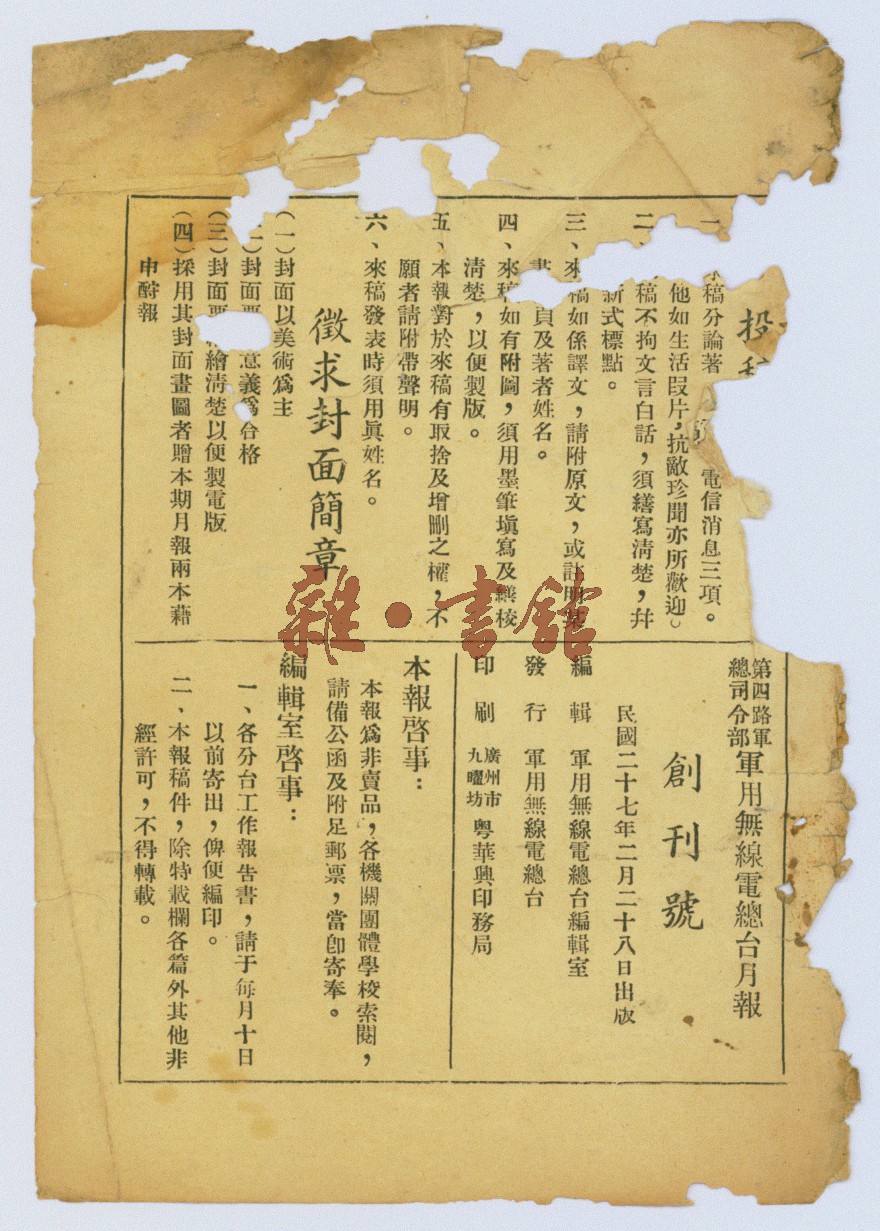 投
一、
稿分論著
電信消息三項。
他如生活段片，抗敵珍聞亦所歡迎。
二、
稿不拘文言白話，須繕寫清楚，幷
新式標點。
三、來
稿如係譯文，請附原文，或註明某
頁及著者姓名。
四、來稿如有附圖，須用墨筆塡寫及繕校
清楚，以便製版。
五、本報對於來稿有取捨及增刪之權，不
願者請附帶聲明。
六、來稿發表時須用眞姓名。
徵求封面簡章
(一)封面以美術爲主
封面要
意義爲合格
(三)封面要
繪清楚以便製電版
(四)採用其封面畫圖者贈本期月報兩本藉
申酧報
第四路軍
總司令部
軍用無線電總台月報
創刊號
民國二十七年二月二十八日出版
編輯 軍用無線電總台編輯室
發行 軍用無線電總台
印刷 廣州市九曜坊 粤華興印務局
本報啓事：
本報爲非賣品，各機關團體學校索閱，
請備公函及附足郵票，當卽寄奉。
編輯室啓事：
一、各分台工作報告書，請于每月十日
以前寄出，俾便編印。
二、本報稿件，除特載欄各篇外其他非
經許可，不得轉載。
雜·書館